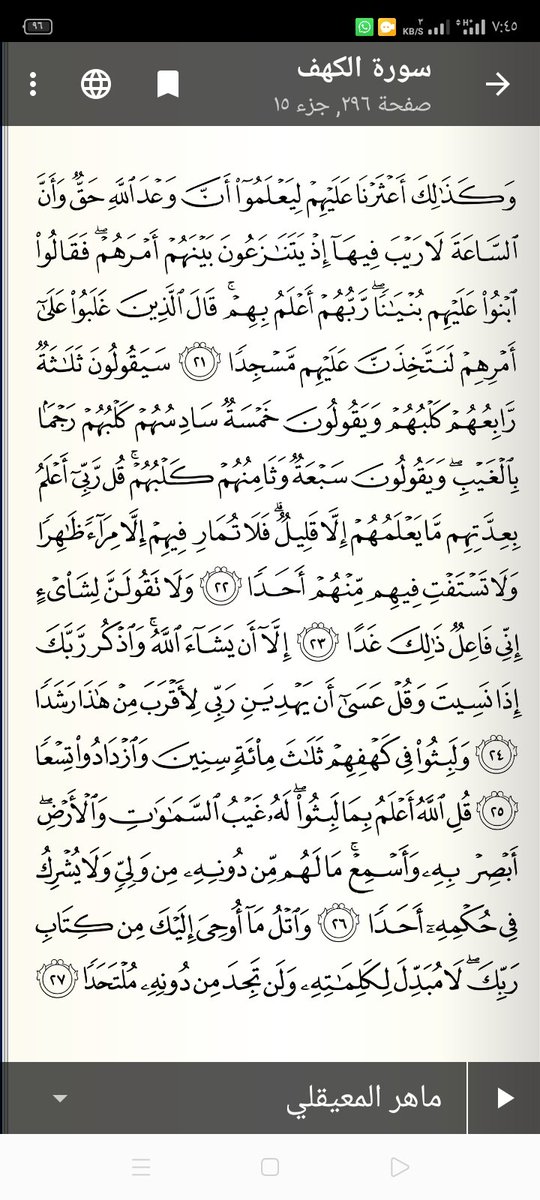 ٩٦ ٣ KB/S H+ ٧:٤٥
سورة الكهف
صفحة ٢٩٦, جزء ١٥
وَكَذَٰلِكَ أَعۡثَرۡنَا عَلَيۡهِمۡ لِيَعۡلَمُوٓاْ أَنَّ وَعۡدَ ٱللَّهِ حَقّٞ وَأَنَّ
ٱلسَّاعَةَ لَا رَيۡبَ فِيهَآ إِذۡ يَتَنَٰزَعُونَ بَيۡنَهُمۡ أَمۡرَهُمۡۖ فَقَالُواْ
ٱبۡنُواْ عَلَيۡهِم بُنۡيَٰنٗاۖ رَّبُّهُمۡ أَعۡلَمُ بِهِمۡۚ قَالَ ٱلَّذِينَ غَلَبُواْ عَلَىٰٓ
أَمۡرِهِمۡ لَنَتَّخِذَنَّ عَلَيۡهِم مَّسۡجِدٗا ٢١ سَيَقُولُونَ ثَلَٰثَةٞ
رَّابِعُهُمۡ كَلۡبُهُمۡ وَيَقُولُونَ خَمۡسَةٞ سَادِسُهُمۡ كَلۡبُهُمۡ رَجۡمَۢا
بِٱلۡغَيۡبِۖ وَيَقُولُونَ سَبۡعَةٞ وَثَامِنُهُمۡ كَلۡبُهُمۡۚ قُل رَّبِّيٓ أَعۡلَمُ
بِعِدَّتِهِم مَّا يَعۡلَمُهُمۡ إِلَّا قَلِيلٞۗ فَلَا تُمَارِ فِيهِمۡ إِلَّا مِرَآءٗ ظَٰهِرٗا
وَلَا تَسۡتَفۡتِ فِيهِم مِّنۡهُمۡ أَحَدٗا ٢٢ وَلَا تَقُولَنَّ لِشَاْيۡءٍ
إِنِّي فَاعِلٞ ذَٰلِكَ غَدًا ٢٣ إِلَّآ أَن يَشَآءَ ٱللَّهُۚ وَٱذۡكُر رَّبَّكَ
إِذَا نَسِيتَ وَقُلۡ عَسَىٰٓ أَن يَهۡدِيَنِ رَبِّي لِأَقۡرَبَ مِنۡ هَٰذَا رَشَدٗا
٢٤ وَلَبِثُواْ فِي كَهۡفِهِمۡ ثَلَٰثَ مِاْئَةٖ سِنِينَ وَٱزۡدَادُواْ تِسۡعٗا
٢٥ قُلِ ٱللَّهُ أَعۡلَمُ بِمَا لَبِثُواْۖ لَهُۥ غَيۡبُ ٱلسَّمَٰوَٰتِ وَٱلۡأَرۡضِۖ
أَبۡصِرۡ بِهِۦ وَأَسۡمِعۡۚ مَا لَهُم مِّن دُونِهِۦ مِن وَلِيّٖ وَلَا يُشۡرِكُ
فِي حُكۡمِهِۦٓ أَحَدٗا ٢٦ وَٱتۡلُ مَآ أُوحِيَ إِلَيۡكَ مِن كِتَابِ
رَبِّكَۖ لَا مُبَدِّلَ لِكَلِمَٰتِهِۦ وَلَن تَجِدَ مِن دُونِهِۦ مُلۡتَحَدٗا ٢٧
ماهر المعيقلي